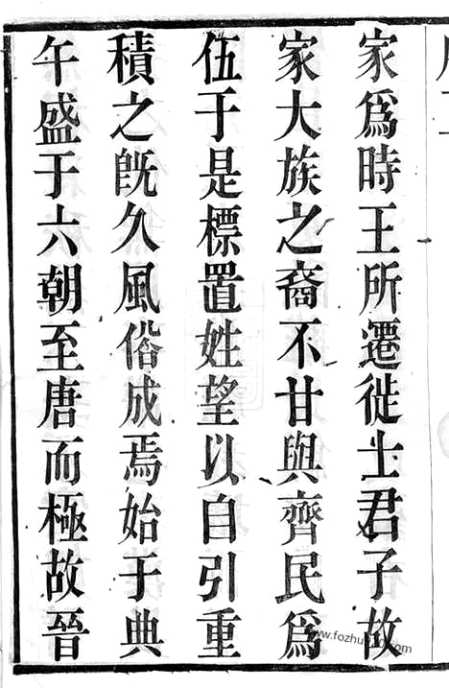 家爲時王所遷徙士君子故
家大族之裔不甘與齊民爲
伍于是標置姓望以自引重
積之旣久風俗成焉始于典
午盛于六朝至唐而極故晉
www.fozhu920.com